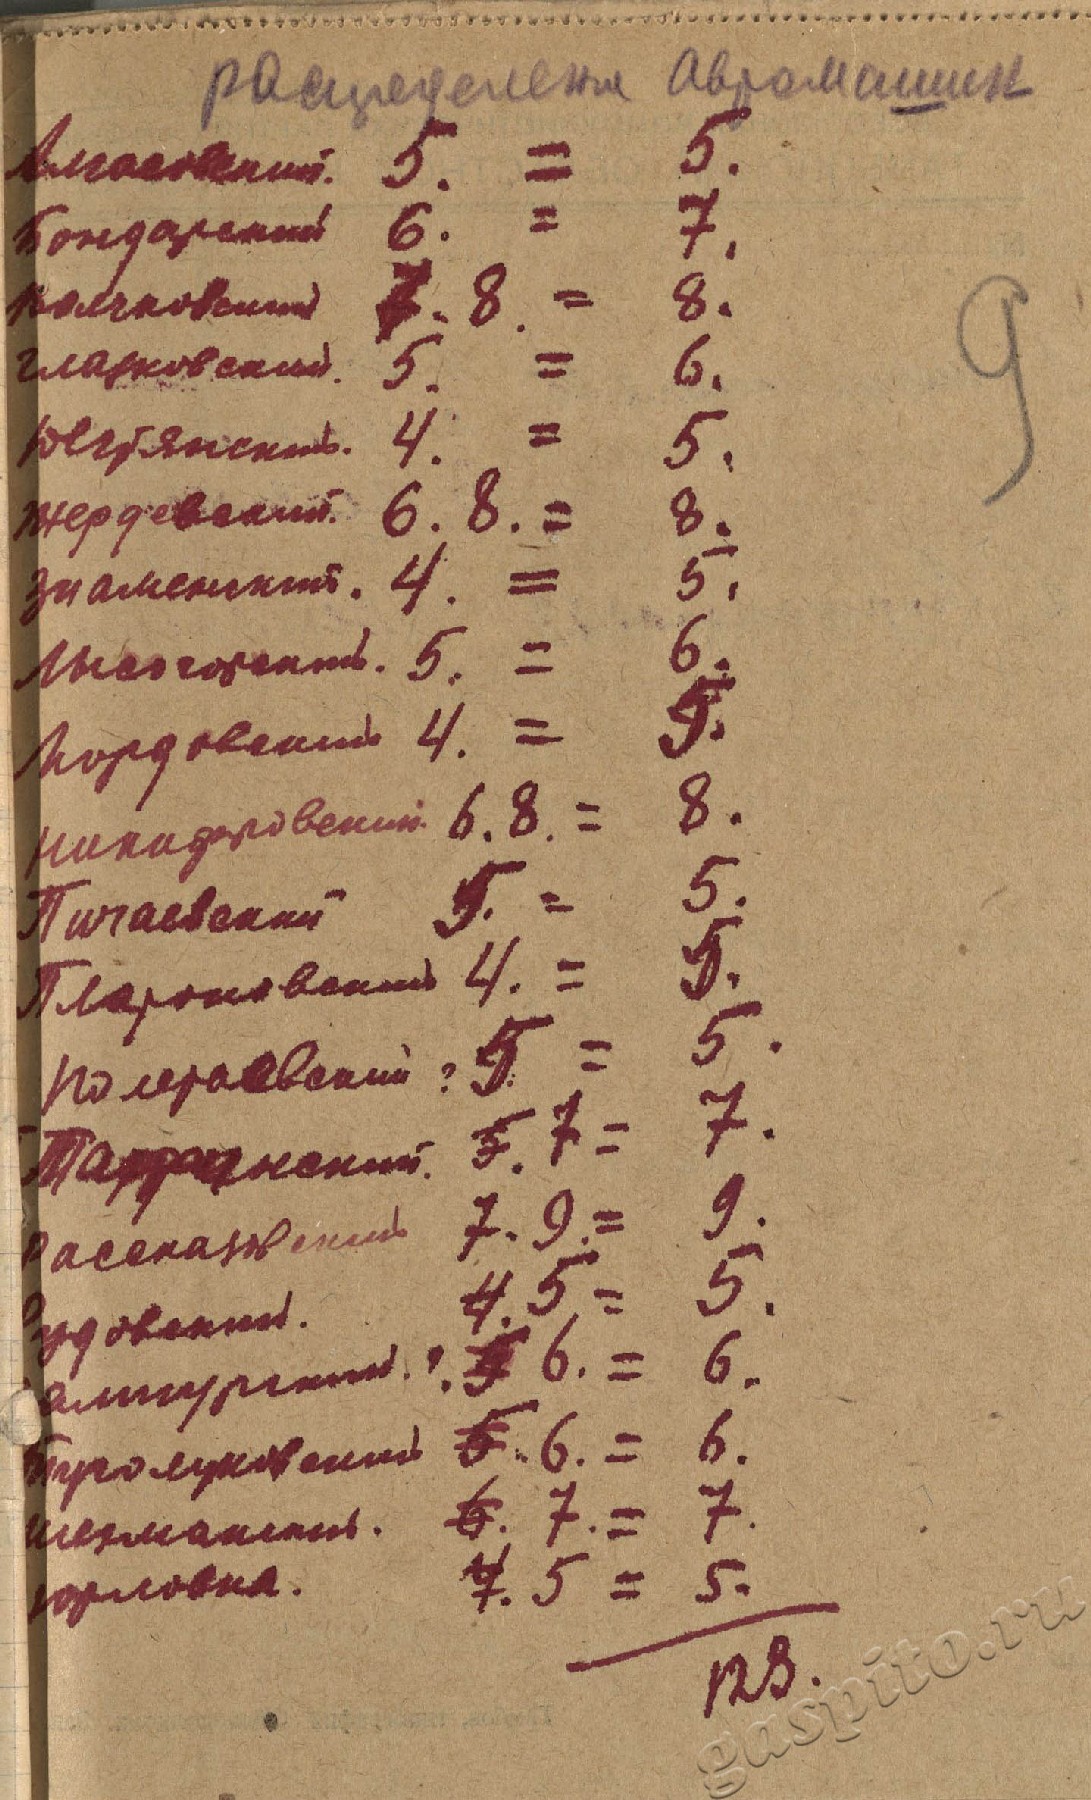 распределения Автомашин
Алгасовский. 5. = 5.
Бондарский 6. = 7.
Волчковский 7. 8. = 8.
Глазковский. 5. = 6.
Юстянский. 4. = 5.
Жердевский. 6. 8. = 8.
Знаменский. 4. = 5.
Лысогорский. 5. = 6.
Мордовский 4. = 5.
Никифоровский. 6. 8. = 8.
Пичаевский 5. = 5.
Платоновский 4. = 5.
Полетаевский ? 5. = 5.
Токаревский. 5. 7 = 7.
Рассказовский 7. 9. = 9.
4. 5 = 5.
Сампурский. ?. 5 6. = 6.
Туголуковский 5. 6. = 6.
6. 7. = 7.
Юрловка. 4. 5 = 5.
123.
9
gaspito.ru